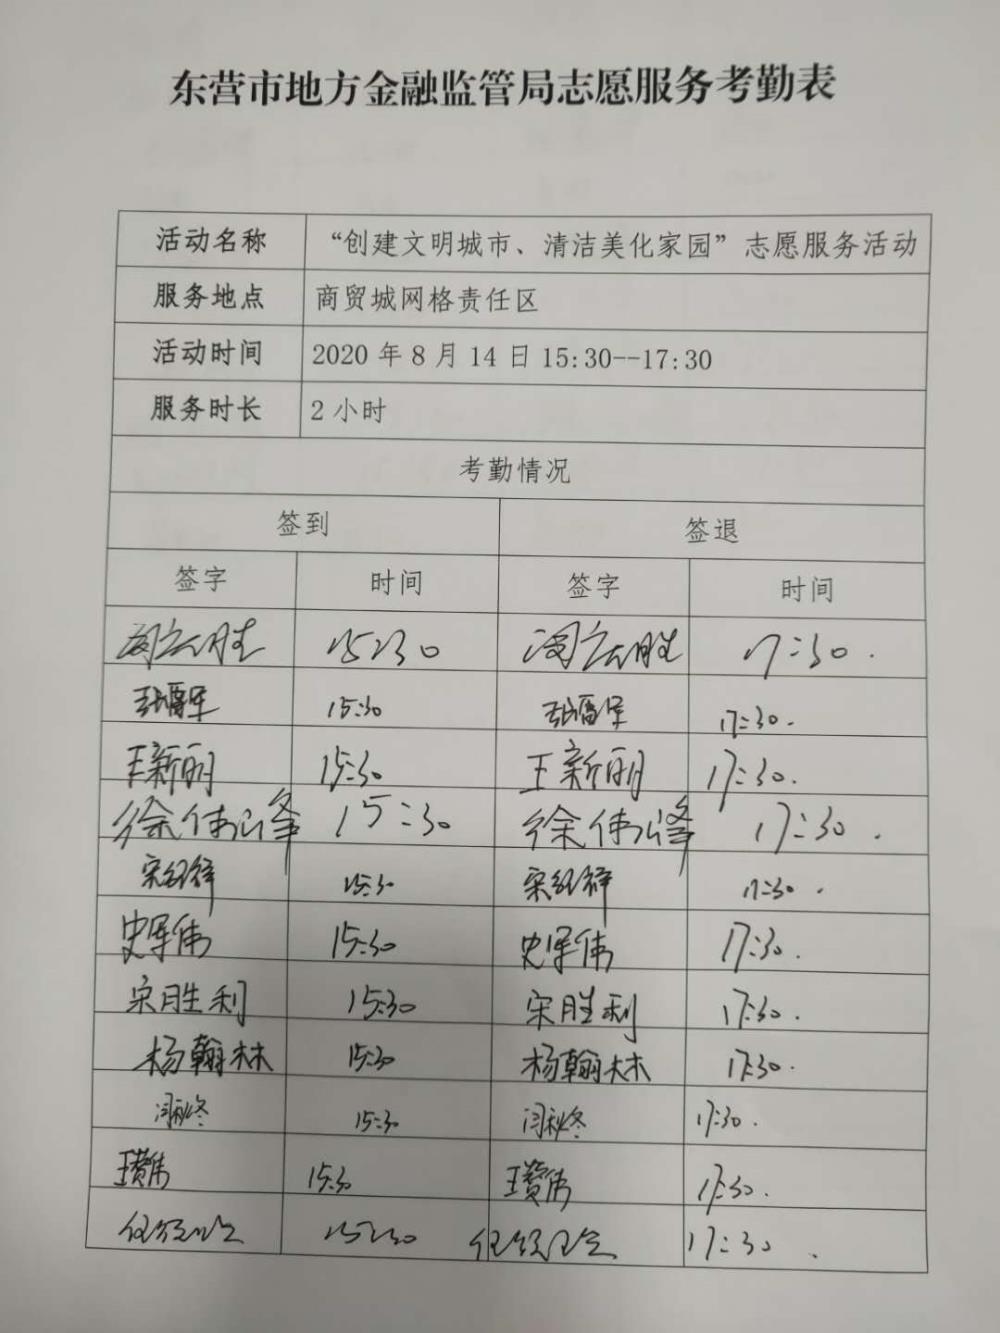 东营市地方金融监管局志愿服务考勤表
活动名称 “创建文明城市、清洁美化家园”志愿服务活动
服务地点 商贸城网格责任区
活动时间 2020年8月14日15:30--17:30
服务时长 2小时
考勤情况
签到 签退
签字 时间 签字 时间
15:30 17:30.
15:30 17:30.
王新丽 15:30 王新丽 17:30.
徐伟峰 15:30 徐伟峰 17:30.
宋纪祥 15:30 宋纪祥 17:30.
史军伟 15:30 史军伟 17:30.
宋胜利 15:30 宋胜利 17:30.
杨翰林 15:30 杨翰林 17:30.
闫秋冬 15:30 闫秋冬 17:30.
王赞伟 15:30 王赞伟 17:30.
15:30 17:30.